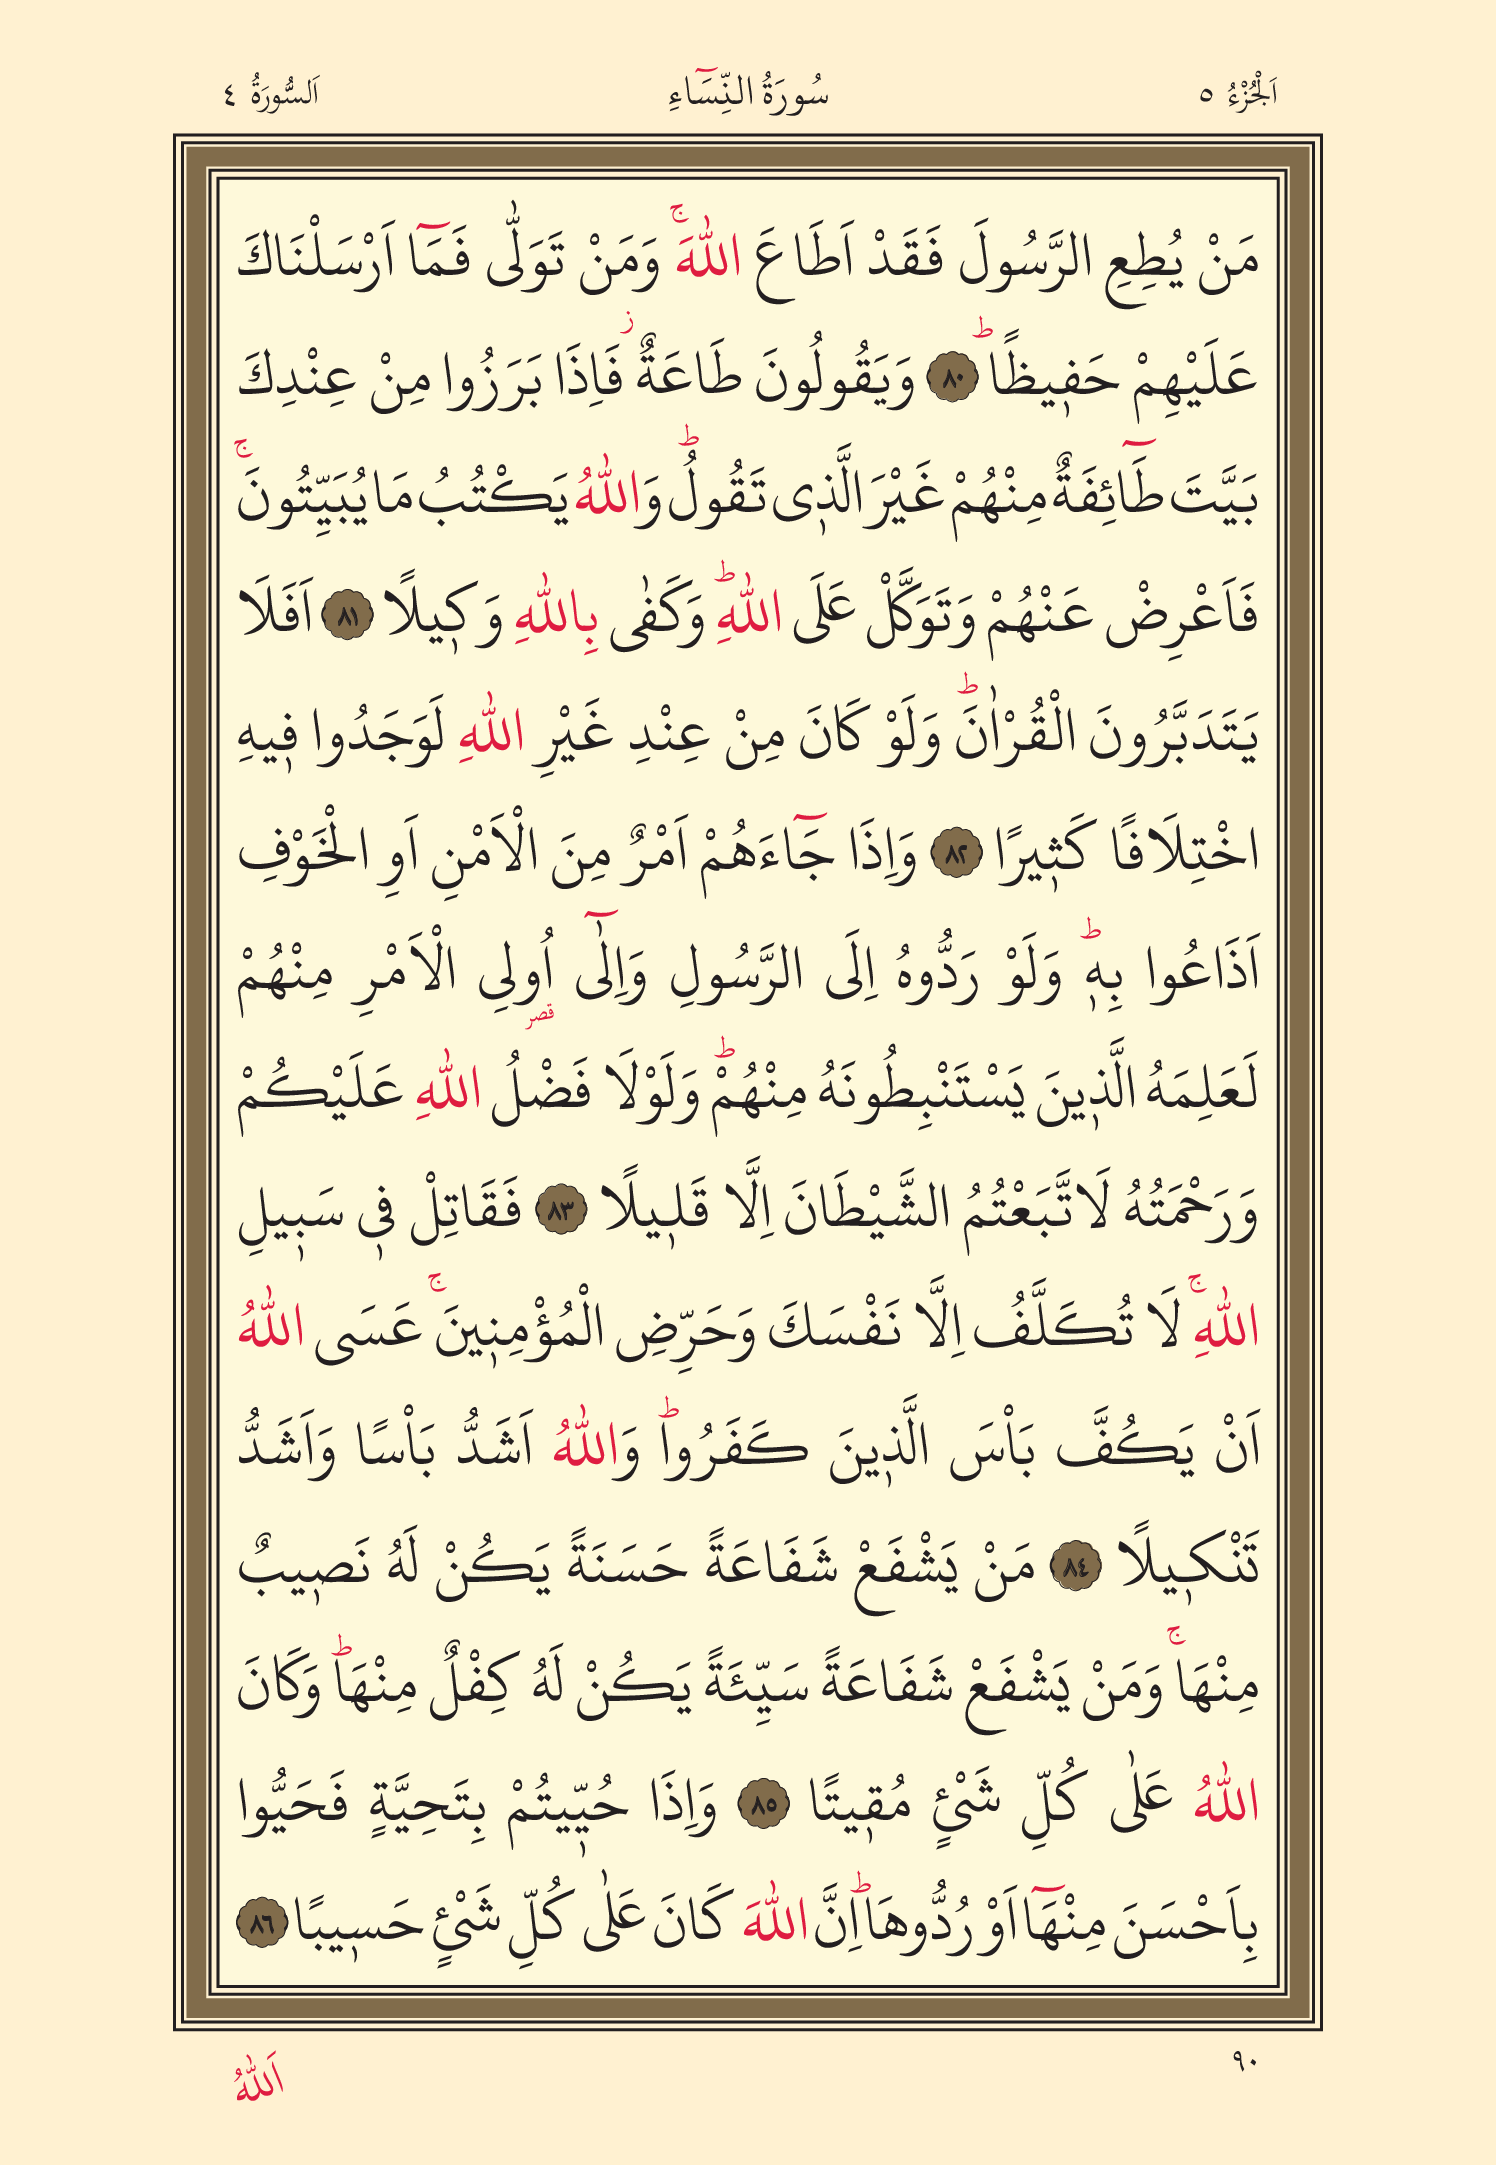 اَلْجُزْءُ ٥ سُورَةُ النِّسَٓاءِ اَلسُّورَةُ ٤
مَنْ يُطِعِ الرَّسُولَ فَقَدْ اَطَاعَ اللّٰهَۚ وَمَنْ تَوَلّٰى فَمَٓا اَرْسَلْنَاكَ
عَلَيْهِمْ حَف۪يظًاۜ ﴿٨٠﴾ وَيَقُولُونَ طَاعَةٌۘ فَاِذَا بَرَزُوا مِنْ عِنْدِكَ
بَيَّتَ طَٓائِفَةٌ مِنْهُمْ غَيْرَ الَّذ۪ى تَقُولُۜ وَاللّٰهُ يَكْتُبُ مَا يُبَيِّتُونَۚ
فَاَعْرِضْ عَنْهُمْ وَتَوَكَّلْ عَلَى اللّٰهِۜ وَكَفٰى بِاللّٰهِ وَك۪يلًا ﴿٨١﴾ اَفَلَا
يَتَدَبَّرُونَ الْقُرْاٰنَۜ وَلَوْ كَانَ مِنْ عِنْدِ غَيْرِ اللّٰهِ لَوَجَدُوا ف۪يهِ
اخْتِلَافًا كَث۪يرًا ﴿٨٢﴾ وَاِذَا جَٓاءَهُمْ اَمْرٌ مِنَ الْاَمْنِ اَوِ الْخَوْفِ
اَذَاعُوا بِه۪ۜ وَلَوْ رَدُّوهُ اِلَى الرَّسُولِ وَاِلٰٓى اُولِى الْاَمْرِ مِنْهُمْ
قصر
لَعَلِمَهُ الَّذ۪ينَ يَسْتَنْبِطُونَهُ مِنْهُمْۜ وَلَوْلَا فَضْلُ اللّٰهِ عَلَيْكُمْ
وَرَحْمَتُهُ لَاتَّبَعْتُمُ الشَّيْطَانَ اِلَّا قَل۪يلًا ﴿٨٣﴾ فَقَاتِلْ ف۪ى سَب۪يلِ
اللّٰهِۚ لَا تُكَلَّفُ اِلَّا نَفْسَكَ وَحَرِّضِ الْمُؤْمِن۪ينَۚ عَسَى اللّٰهُ
اَنْ يَكُفَّ بَاْسَ الَّذ۪ينَ كَفَرُواۜ وَاللّٰهُ اَشَدُّ بَاْسًا وَاَشَدُّ
تَنْك۪يلًا ﴿٨٤﴾ مَنْ يَشْفَعْ شَفَاعَةً حَسَنَةً يَكُنْ لَهُ نَص۪يبٌ
مِنْهَاۚ وَمَنْ يَشْفَعْ شَفَاعَةً سَيِّئَةً يَكُنْ لَهُ كِفْلٌ مِنْهَاۜ وَكَانَ
اللّٰهُ عَلٰى كُلِّ شَىْءٍ مُق۪يتًا ﴿٨٥﴾ وَاِذَا حُيّ۪يتُمْ بِتَحِيَّةٍ فَحَيُّوا
بِاَحْسَنَ مِنْهَٓا اَوْ رُدُّوهَاۜ اِنَّ اللّٰهَ كَانَ عَلٰى كُلِّ شَىْءٍ حَس۪يبًا ﴿٨٦﴾
٩٠ اَللّٰهُ